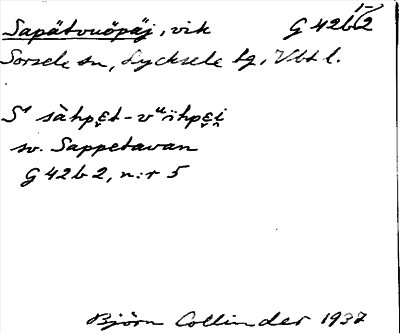 Sapätvuöpäj, vik G 42b2
Sorsele sn, Lycksele tg, Vbtl.
S¹ sàhpẹt-vᵘïhpẹi̯
sv. Sappetavan
G 42b2, n:r 5
Björn Collinder 1937